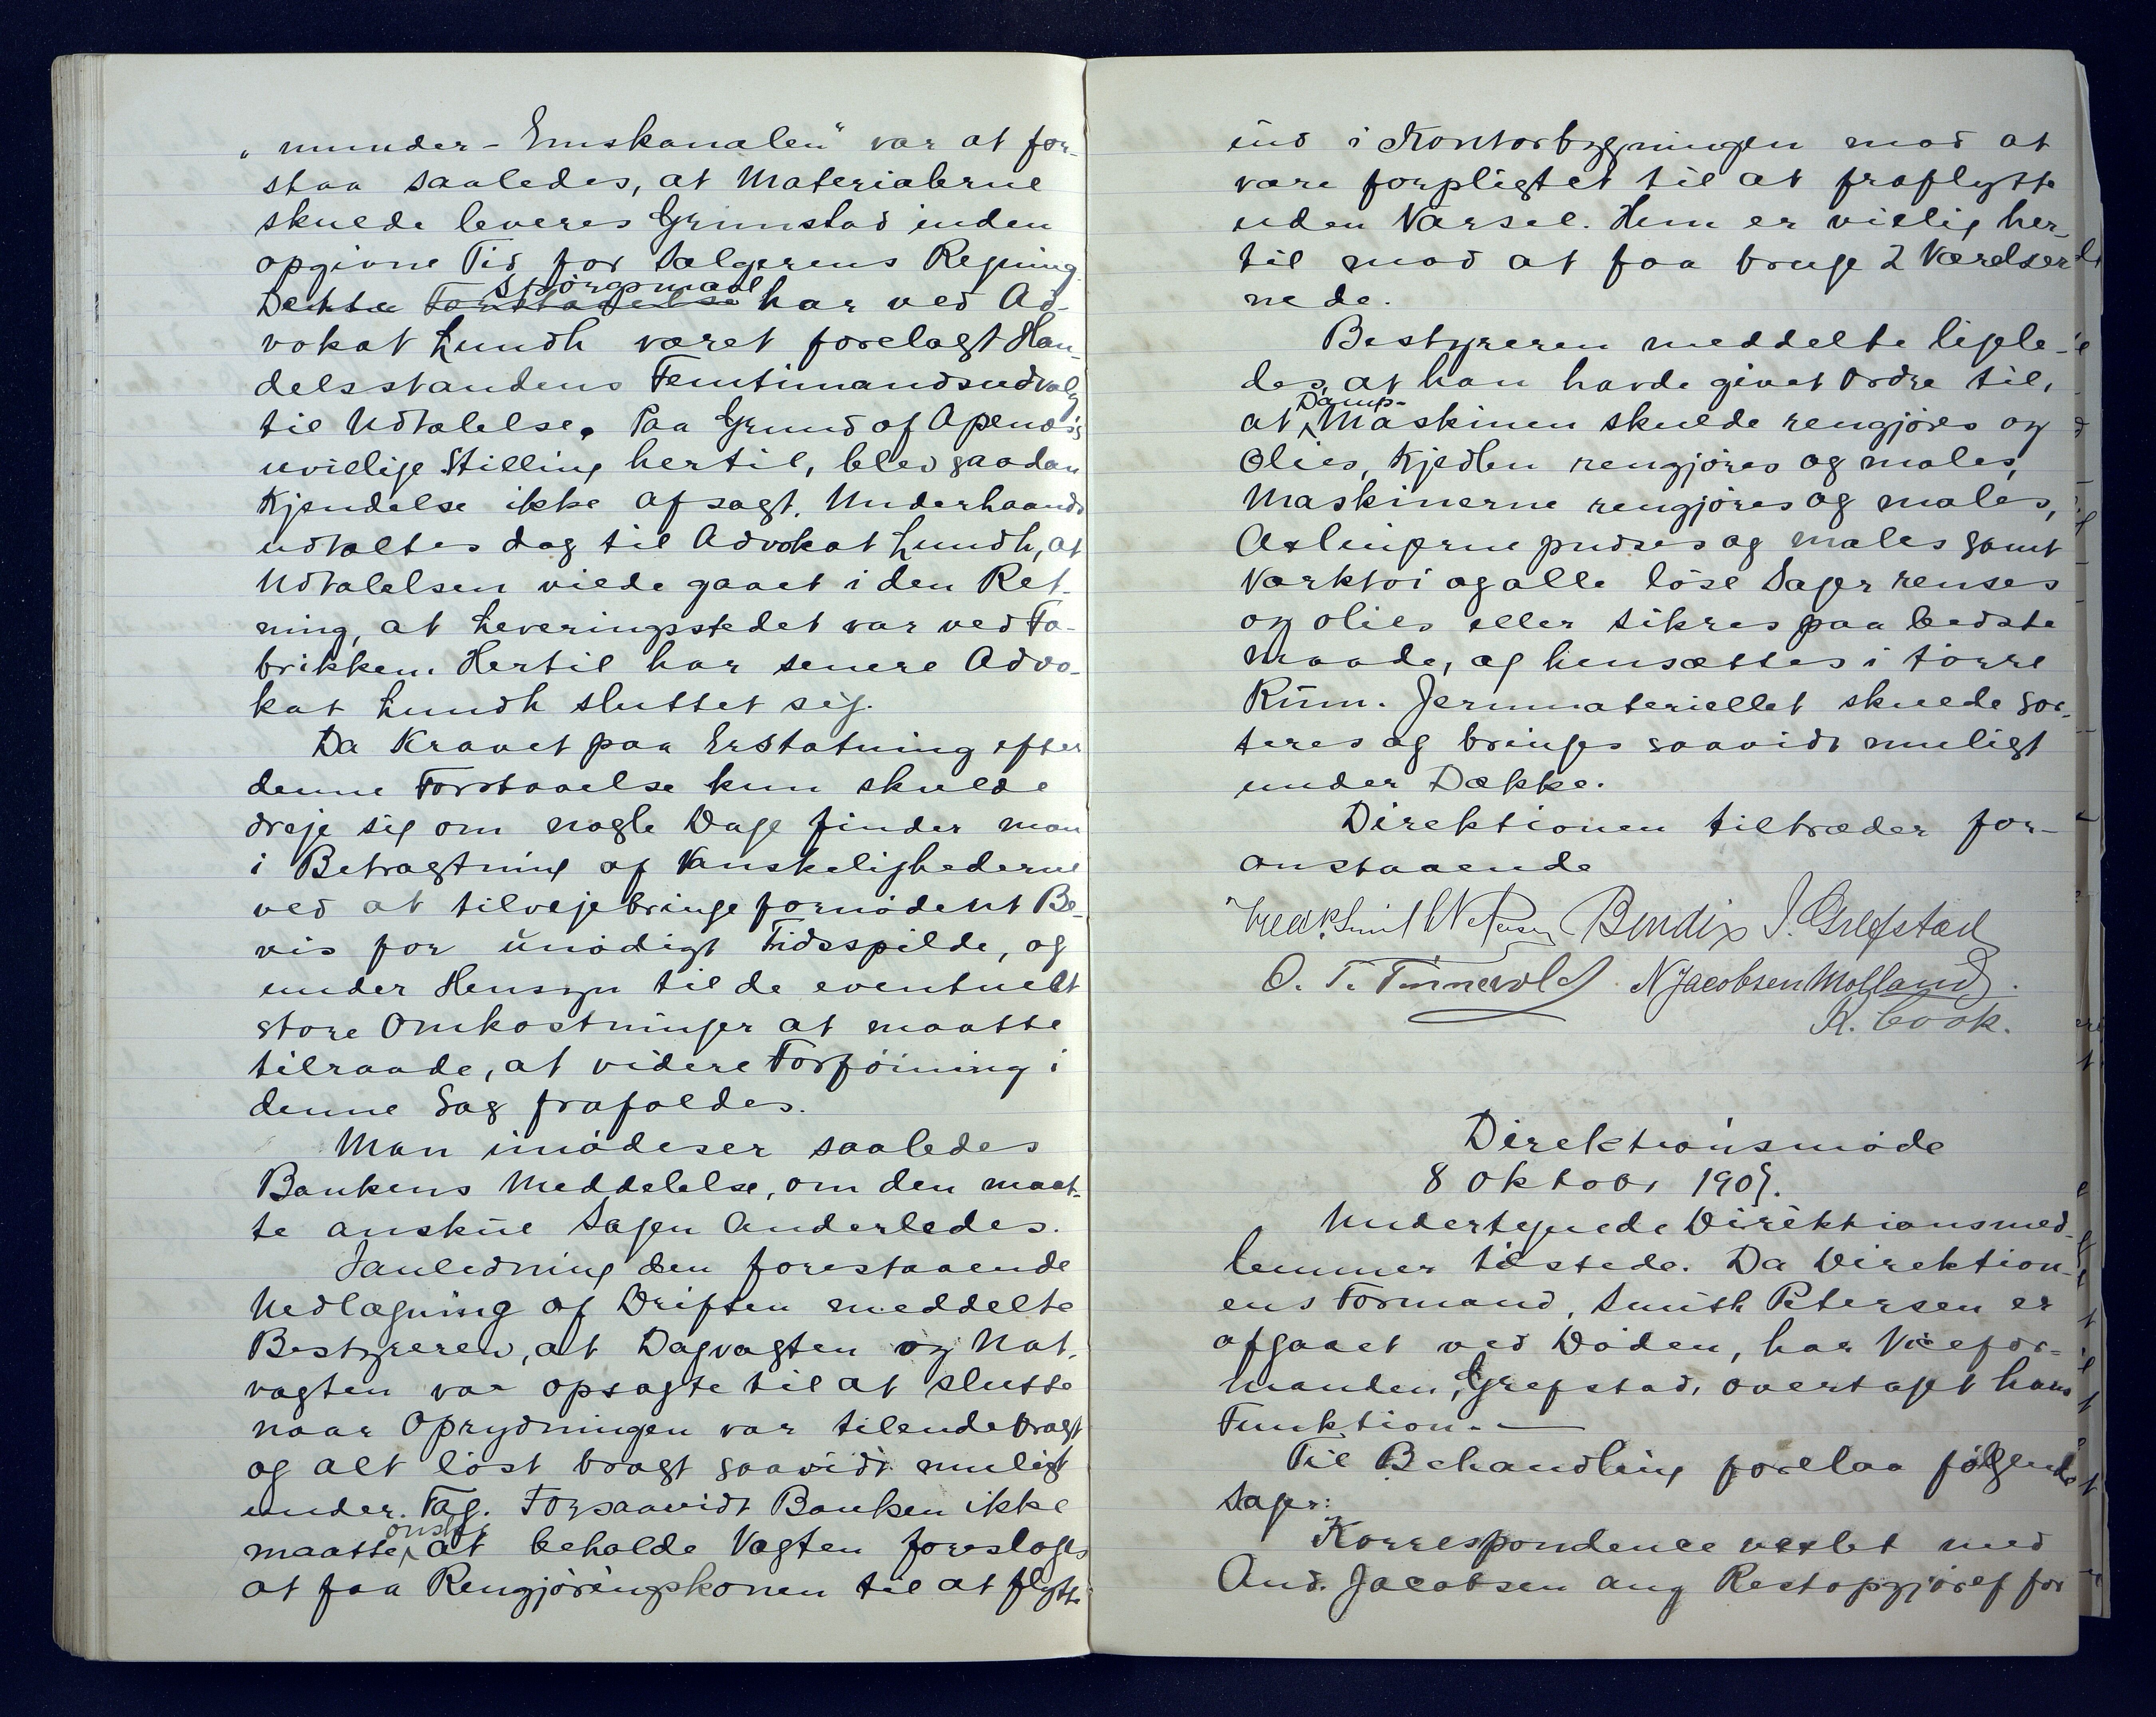 „munder-Emskanalen“ var at for-
staa saaledes, at Materialerne
skulde leveres Grimstad inden
opgivne Tid for Sælgerens Regning.
Dette Spörgsmaal har ved Ad-
vokat Lundh været forelagt Han-
delsstandens Femtimandsudvalg
til Udtalelse. Paa Grund af Apenvigs
uvillige Stilling hertil, blev saadan
Kjendelse ikke afsagt. Underhaands
udtaltes dog til Advokat Lundh, at
Udtalelsen vilde gaaet i den Ret-
ning, at Leveringsstedet var ved Fa-
brikken. Hertil har senere Advo-
kat Lundh sluttet sig.
Da Kravet paa Erstatning efter
denne Forstaaelse kun skulde
dreje sig om nogle Dage finder man
i Betragtning af Vanskelighederne
ved at tilvejebringe fornödent Be-
vis for unödigt Tidsspilde, og
under Hensyn til de eventuelt
store Omkostninger at maatte
tilraade, at videre Forföining i
denne Sag frafaldes.
Man imödeser saaledes
Bankens Meddelelse, om den maat-
te anskue Sagen Anderledes.
I anledning den forestaaende
Nedlægning af Driften meddelte
Bestyreren, at Dagvagten og Nat-
vagten var opsagte til at slutte
naar Oprydningen var tilendebragt
og alt löst bragt saavidt muligt
under Tag. Forsaavidt Banken ikke
maatte önske at beholde Vagten foresloges
at faa Rengjöringskonen til at flytte
ind i Kontorbygningen mod at
være forpligtet til at fraflytte
uden Varsel. Hun er villig her-
til mod at faa bruge 2 Værelser
nede.
Bestyreren meddelte ligele-
des, at han havde givet Ordre til,
at Damp-Maskinen skulde rengjöres og
Olies, Kjedlen rengjöres og males,
Maskinerne rengjöres og males,
Axlingerne pudses og males samt
Værktöi og alle löse Sager renses
og olies eller sikres paa bedste
maade, og hensættes i törre
Rum. Jernmateriellet skulde sor-
teres og bringes saavidt muligt
under Dække.
Direktionen tiltræder for-
anstaaende
Fredk. Smith Petersen Bendix J. Grefstad
O. T. Tönnevold N Jacobsen Molland.
R. Cook.
Direktionsmöde
8 Oktobr 1909.
Undertegnede Direktionsmed-
lemmer tilstede. Da Direktion-
ens Formand, Smith Petersen er
afgaaet ved Döden, har Vicefor-
manden, Grefstad, overtaget hans
Funktion. —
Til Behandling forelaa fölgende
Sager:
Korrespondence vexlet med
And. Jacobsen ang Restopgjöret for